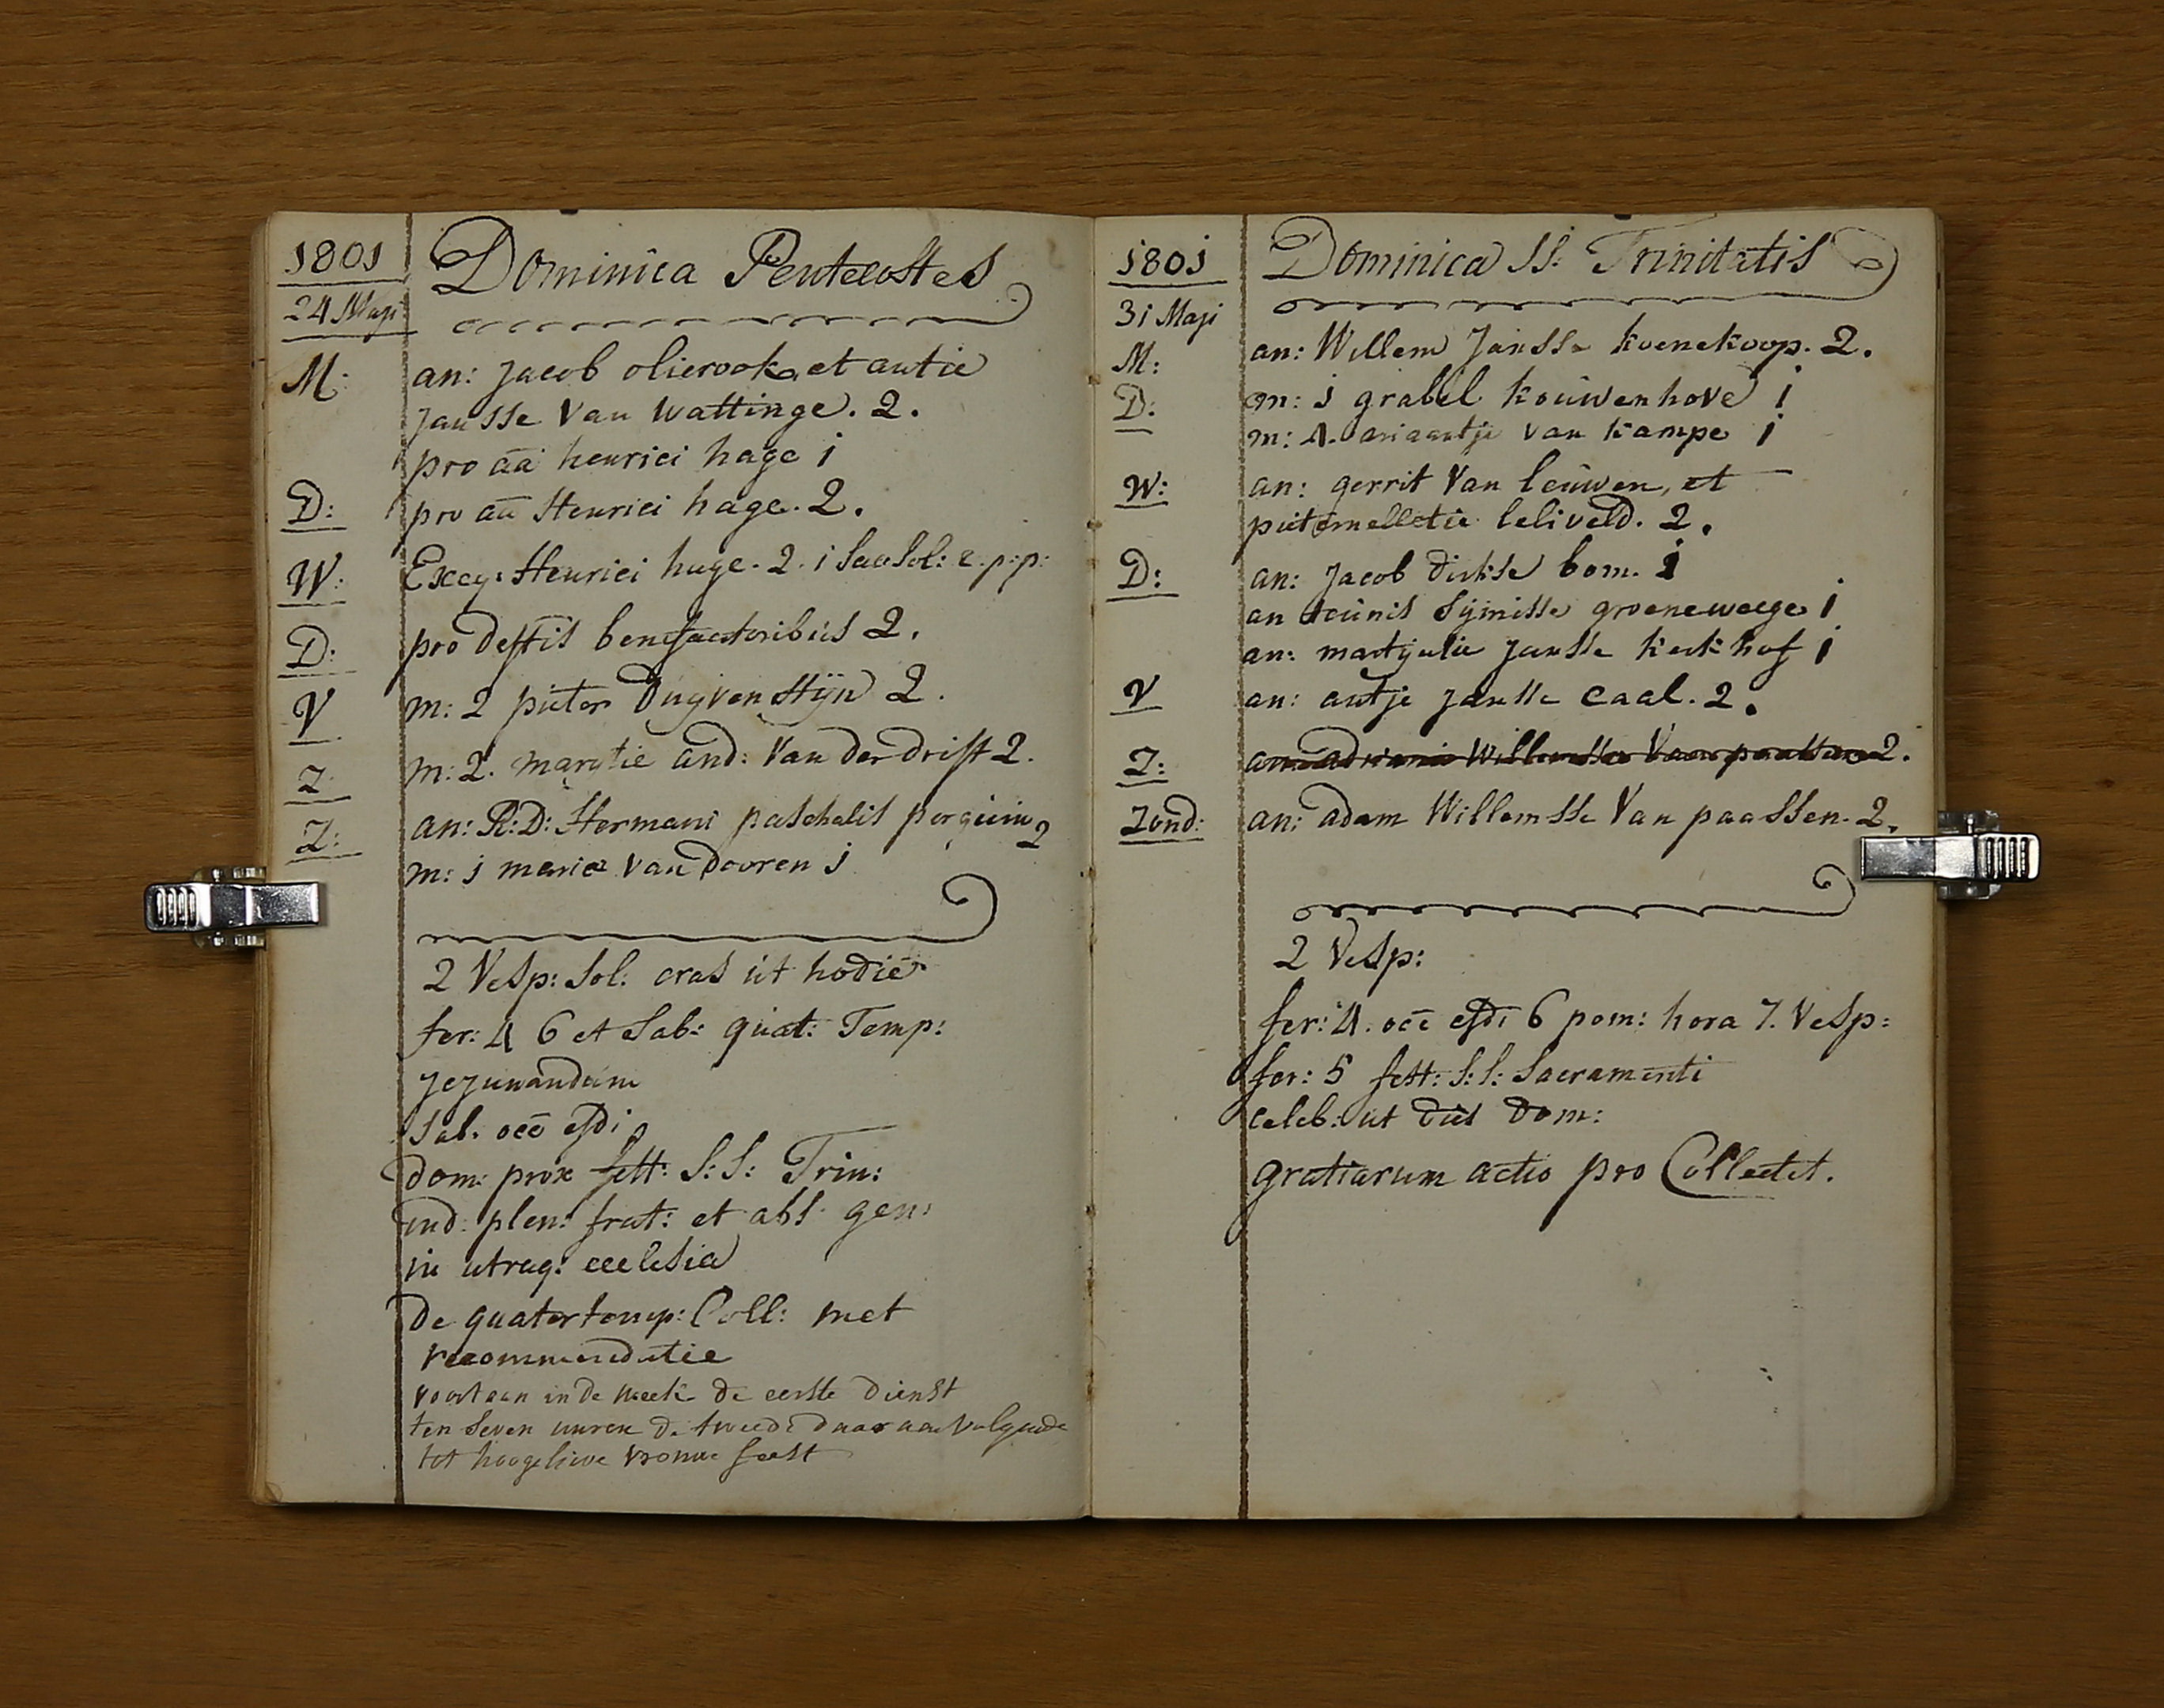 1801
24 Maji
Dominica Pentecostes
M: an: Jacob olierook et antie
Jansse Van Wattinge. 2.
pro āā henrici hage j
D: pro āā Henrici hage. 2.
W: Exeq: Henrici hage. 2. i Sol: e. p:p:
D: pro deftis benefactoribus 2.
V m: 2 pieter Duyvenstijn 2.
Z m: 2. marytie and: Van der drift 2.
Z: an: R:D: Hermani paschalis 2
m: j maria Van Dooren j
2 Vesp: Sol: cras ut hodie
fer: 4 6 et Sab: quat: Temp:
Jejunandum
Sab. occ esdi
dom: prox fest: S:S: Trin:
ind: plen: frat: et abs gen:
in utraq: ecclesia
de quatertemp: Coll: met
recommendatie
voortaan in de week de eerste dienst
ten seven uuren de tweede daar aan volgende
tot hoogelieve vrouwe feest
1801
31 Maji
Dominica SS: Trinitatis
M: an: Willem Jansse koenekoop. 2.
D: m: j grabel kouwenhove j
m: 4. ariaantje van kampe j
W: an: gerrit Van leuwen, et
leliveld. 2.
D: an: Jacob dirkse bom. j
an teunis Sijmisse groeneweege j
an: martijntie Jansse kerkhof j
V an: antje Jansse Caal. 2.
Z: an: Willemsse Van paassen 2.
Zond: an: adam Willemsse Van paassen. 2.
2 Vesp:
fer: 4. occ esdi 6 pom: hora 7. Vesp:
fer: 5 fest: S:S: Sacramenti
celeb: ut dies dom:
gratiarum actio pro Collectet.